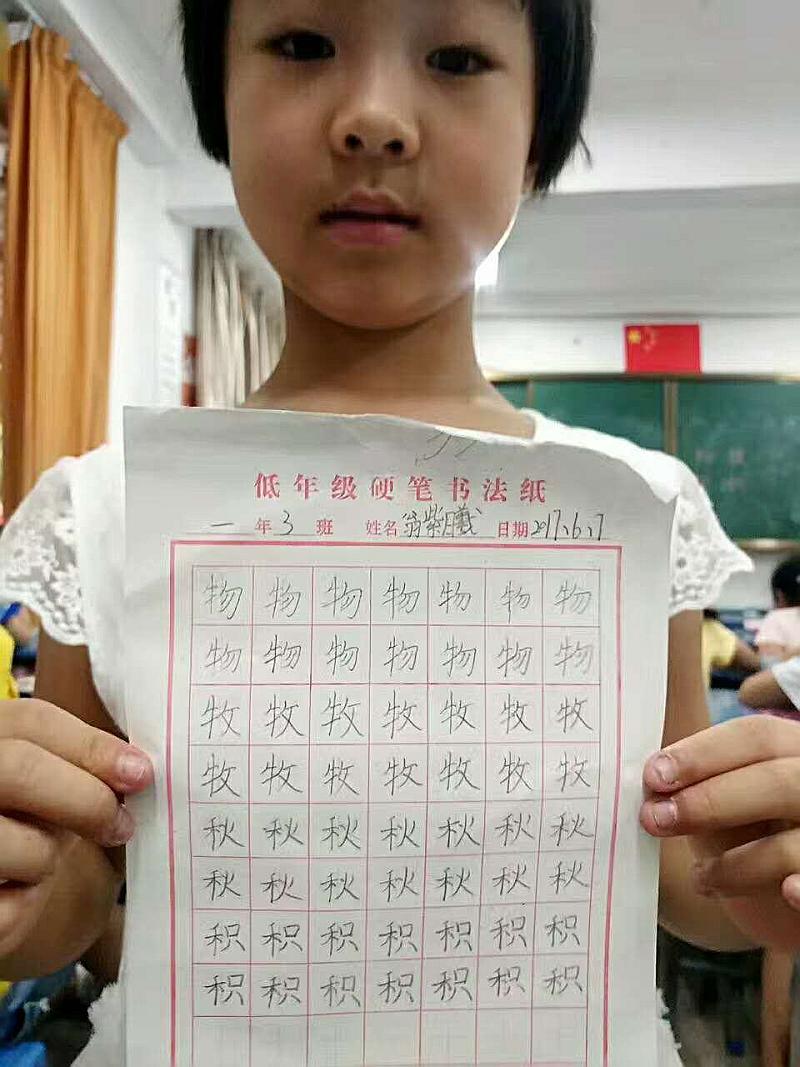 低年级硬笔书法纸
一年3班 姓名翁紫曦 日期2017.6.17
物物物物物物物
物物物物物物物
牧牧牧牧牧牧牧
牧牧牧牧牧牧牧
秋秋秋秋秋秋秋
秋秋秋秋秋秋秋
积积积积积积积
积积积积积积积